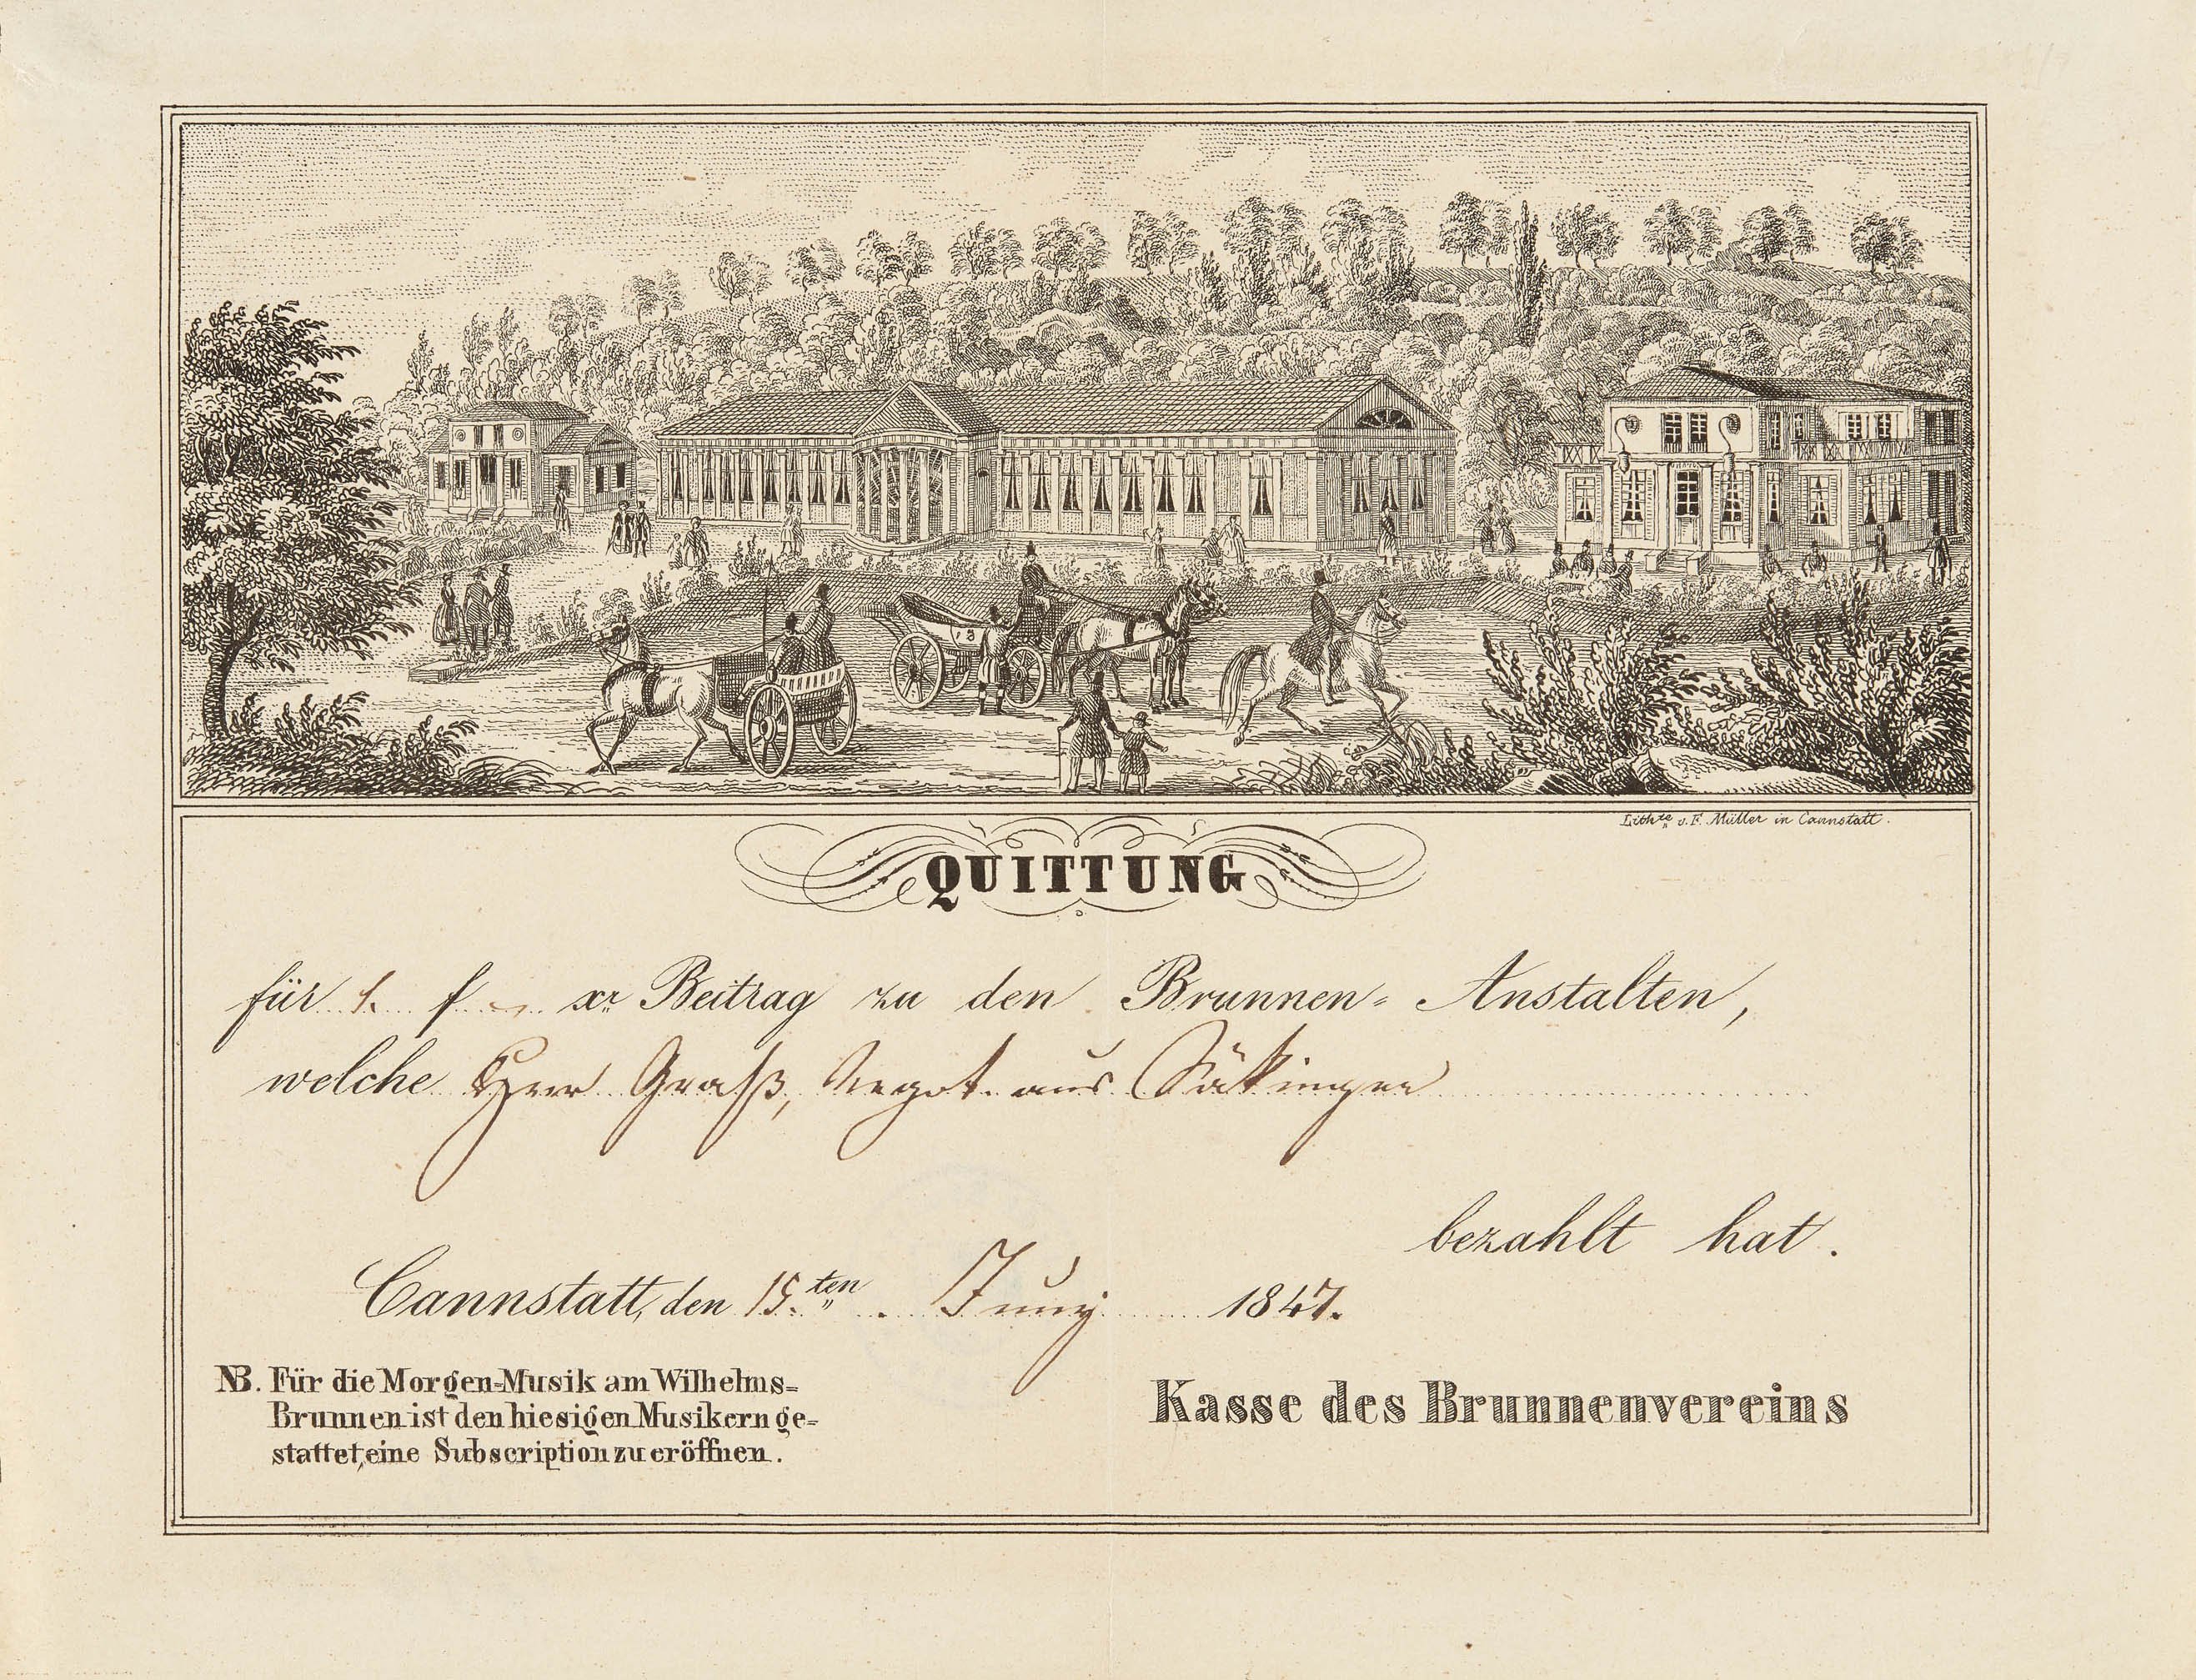 Lith.te v. F. Müller in Cannstatt.
QUITTUNG
für 1. f – xr Beitrag zu den Brunnen-Anstalten,
welche Herr Graß, Negot. aus Säkingen
bezahlt hat.
Cannstatt, den 15.ten Juny 1847.
NB. Für die Morgen-Musik am Wilhelms-
Brunnen ist den hiesigen Musikern ge-
stattet, eine Subscription zu eröffnen.
Kasse des Brunnenvereins